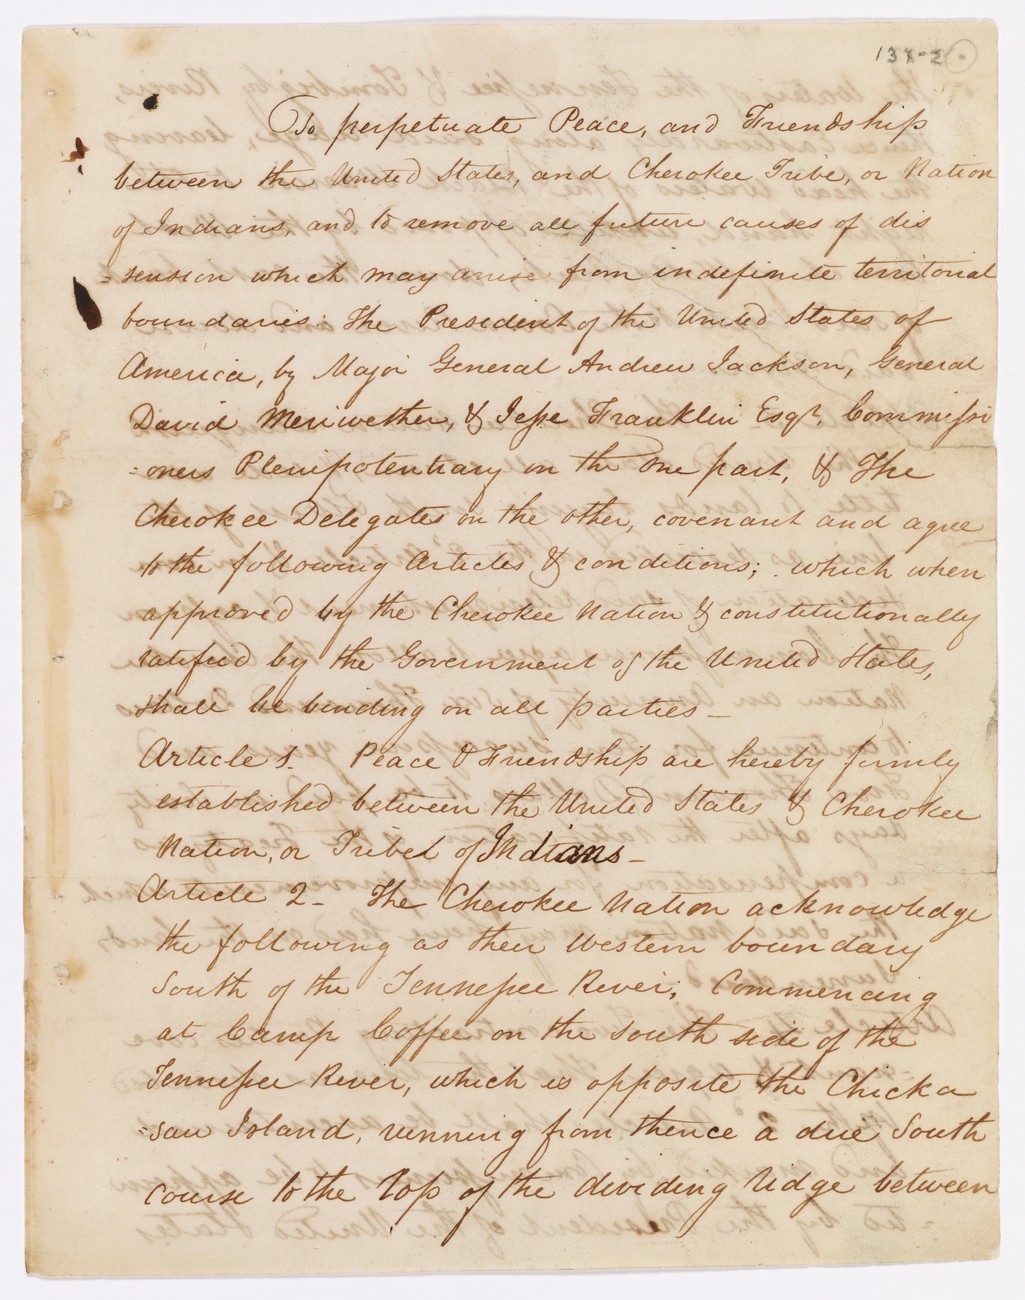 138-2
To perpetuate Peace, and Friendship
between the United States, and Cherokee Tribe, or Nation
of Indians, and to remove all future causes of dis
=sension which may arise from indefinite territorial
boundaries: The President of the United States of
America, by Major General Andrew Jackson, General
David Meriwether, & Jesse Franklin Esqr. Commissi
=oners Plenipotentiary on the one part, & The
Cherokee Delegates on the other, covenant and agree
to the following Articles & conditions; which when
approved by the Cherokee Nation & constitutionally
ratified by the Government of the United States,
shall be binding on all parties—
Article 1. Peace & Friendship are hereby firmly
established between the United States & Cherokee
Nation, or Tribe of Indians—
Article 2— The Cherokee Nation acknowledge
the following as their Western boundary
South of the Tennessee River; Commencing
at Camp Coffee on the South side of the
Tennessee River, which is opposite the Chicka
=saw Island, running from thence a due South
course to the top of the dividing ridge between